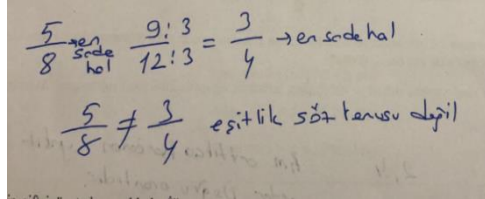 5/8 → en sade hal 9:3/12:3 = 3/4 → en sade hal
5/8 ≠ 3/4 eşitlik söz konusu değil